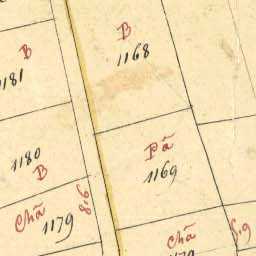 B
1168
B
1181
Pã
1169
1180
B
Chã
1179
8.6
Chã